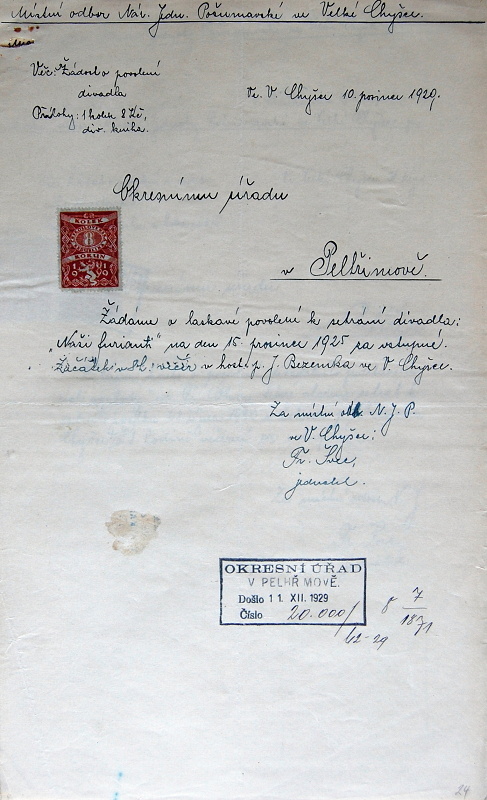 Místní odbor Nár. Jedn. Pošumavské ve Velké Chyšce.
Věc: Žádost o povolení
divadla
Ve V. Chyšce 10. prosince 1929.
Přílohy: 1 kolek 8 Kč,
div. kniha.
Okresnímu úřadu
v Pelhřimově.
KOLEK
8
KORUN
Žádáme o laskavé povolení k sehrání divadla:
"Naši furianti" na den 15. prosince 1925 za vstupné.
Začátek v 8h. večer v host. p. J. Bezemka ve V. Chyšce.
Za místní odb. N. J. P.
ve V. Chyšce:
Fr. Švec,
jednatel.
OKRESNÍ ÚŘAD
V PELHŘIMOVĚ.
Došlo 11. XII. 1929
Číslo 20.000/
42-29
8 7
1871
24